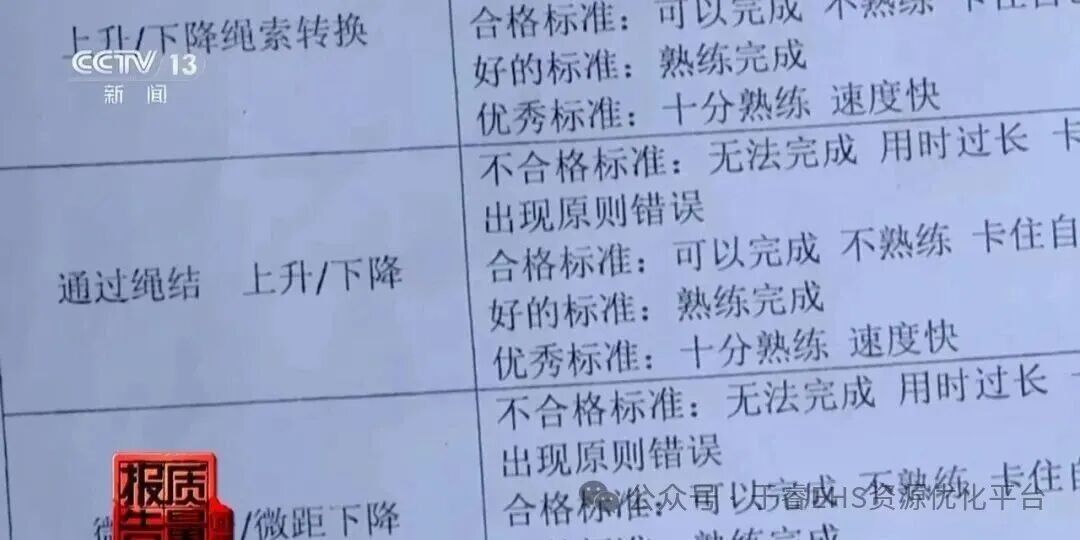 上升/下降绳索转换
合格标准：可以完成 不熟练 卡住自
好的标准：熟练完成
优秀标准：十分熟练 速度快
CCTV 13
新闻
通过绳结 上升/下降
不合格标准：无法完成 用时过长 卡
出现原则错误
合格标准：可以完成 不熟练 卡住自
好的标准：熟练完成
优秀标准：十分熟练 速度快
/微距下降
不合格标准：无法完成 用时过长
出现原则错误
合格标准：可以完成 不熟练 卡住自
好的标准：熟练完成
质量
报告
公众号·于睿EHS资源优化平台